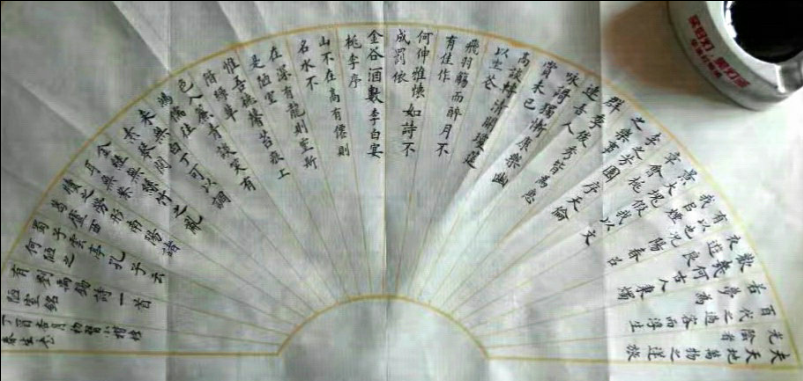 夫天地萬物之逆旅
光陰者
百代之過客而浮生
若夢為
歡幾何古人秉燭
夜遊良
有以也況陽春召
我以煙
景大塊假我以文
章會桃
李之芳園序天倫
之樂事
群季俊秀皆為惠
連吾人
詠歌獨慚康樂幽
賞未已
高談轉清開瓊筵
以坐花
飛羽觴而醉月不
有佳作
何伸雅懷如詩不
成罰依
金谷酒數李白宴
桃李序
山不在高有僊則
名水不
在深有龍則靈斯
是陋室
惟吾德馨苔痕上
階綠草
色入簾青談笑有
鴻儒往
來無白丁可以調
素琴閱
金經無絲竹之亂
耳無案
牘之勞形南陽諸
葛廬西
蜀子雲亭孔子云
何陋之
有劉禹錫詩一首
陋室銘
丁酉杏月初習小楷
春生書